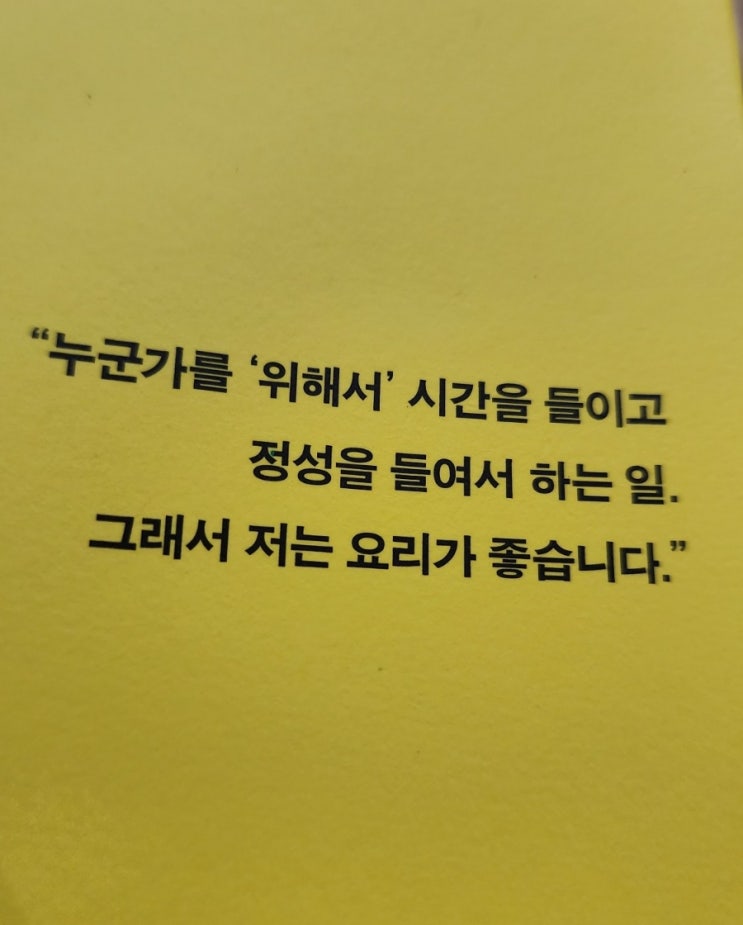 “누군가를 ‘위해서’ 시간을 들이고
정성을 들여서 하는 일.
그래서 저는 요리가 좋습니다.”